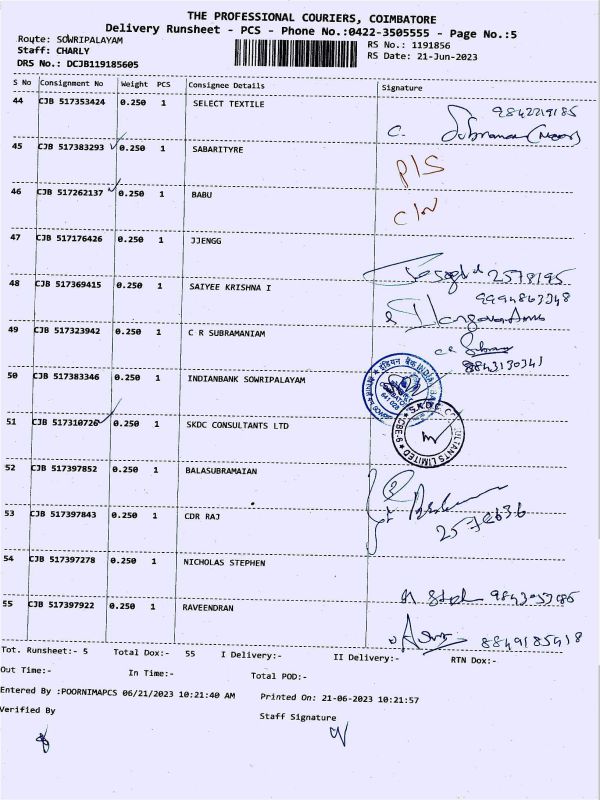 THE PROFESSIONAL COURIERS, COIMBATORE
Delivery Runsheet - PCS - Phone No.:0422-3505555 - Page No.:5
Route: SOWRIPALAYAM
RS No.: 1191856
Staff: CHARLY
RS Date: 21-Jun-2023
DRS No.: DCJB119185605
S No Consignment No Weight PCS Consignee Details Signature
44 CJB 517353424 0.250 1 SELECT TEXTILE
9842219185
C.
45 CJB 517383293 0.250 1 SABARITYRE
P/S
46 CJB 517262137 0.250 1 BABU
C/N
47 CJB 517176426 0.250 1 JJENGG
2578195
48 CJB 517369415 0.250 1 SAIYEE KRISHNA I
9994863348
49 CJB 517323942 0.250 1 C R SUBRAMANIAM
8843130341
50 CJB 517383346 0.250 1 INDIANBANK SOWRIPALAYAM
51 CJB 517310726 0.250 1 SKDC CONSULTANTS LTD
52 CJB 517397852 0.250 1 BALASUBRAMAIAN
53 CJB 517397843 0.250 1 CDR RAJ
54 CJB 517397278 0.250 1 NICHOLAS STEPHEN
55 CJB 517397922 0.250 1 RAVEENDRAN
8849185918
Tot. Runsheet:- 5 Total Dox:- 55 I Delivery:- II Delivery:- RTN Dox:-
Out Time:- In Time:- Total POD:-
Entered By :POORNIMAPCS 06/21/2023 10:21:40 AM Printed On: 21-06-2023 10:21:57
Verified By Staff Signature